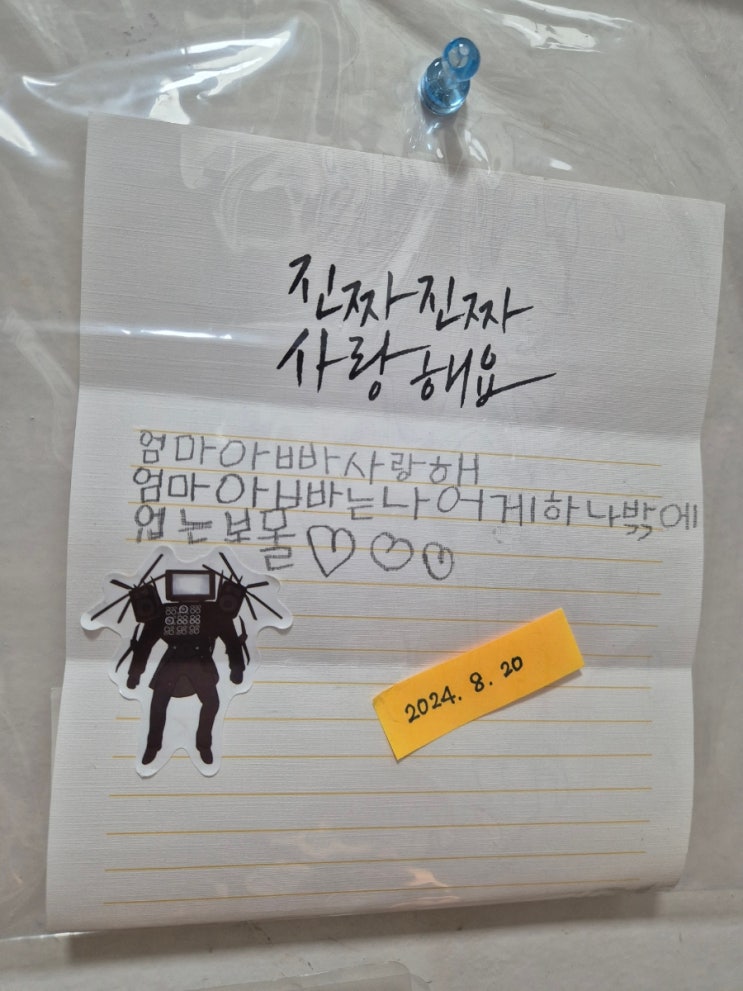 진짜진짜
사랑해요
엄마아빠사랑해
엄마아빠는나어게하나밖에
업는보물♡♡♡
2024. 8. 20